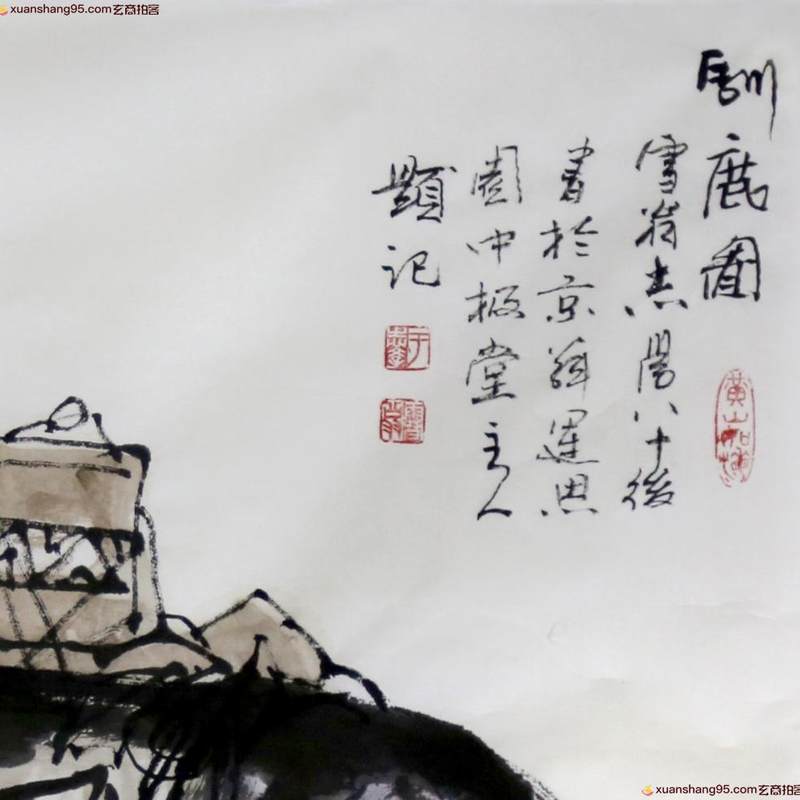 xuanshang95.com玄商拍客
馴鹿圖
雪翁志陽八十後
書於京華還思
園中极堂主人
題记
黄山如梅
xuanshang95.com玄商拍客